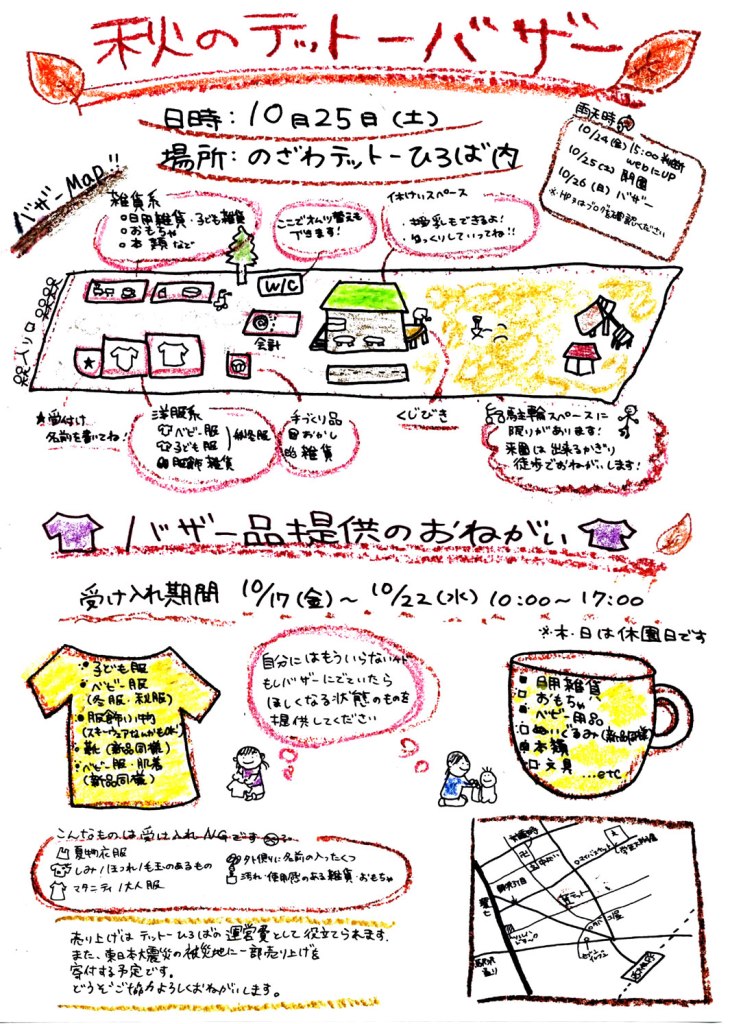 秋のデットーバザー
日時：10月25日（土）
場所：のざわデットーひろば内
雨天時
10/24(金)15:00判断
webにUP
10/25(土)閉園
10/26(日)バザー
バザーMap!!
雑貨系
日用雑貨・子ども雑貨
おもちゃ
本類など
ここでオムツ替えも
できます！
休けいスペース
授乳もできるよ！
ゆっくりしていってね!!
W/C
会計
入り口
★受付け
名前を書いてね！
洋服系
ベビー服
子ども服
服飾雑貨
秋冬服
手づくり品
おかし
雑貨
くじびき
駐輪スペースに
限りがあります！
来園は出来るかぎり
徒歩でおねがいします！
バザー品提供のおねがい
受け入れ期間 10/17(金)～10/22(水) 10:00～17:00
※木・日は休園日です
子ども服
ベビー服
(冬服・秋服)
服飾小物
(スキーウェアなんかもOK!)
靴(新品同様)
ベビー服・肌着
(新品同様)
自分にはもういらないけど
もしバザーにでていたら
ほしくなる状態のものを
提供してください
日用雑貨
おもちゃ
ベビー用品
ぬいぐるみ(新品同様)
本類
文具 ...etc
こんなものは受け入れNGです
夏物衣服
しみ/ほつれ/毛玉のあるもの
マタニティ/大人服
外側に名前の入ったくつ
汚れ・使用感のある雑貨・おもちゃ
売り上げはデットーひろばの運営費として役立てられます.
また、東日本大震災の被災地に一部売り上げを
寄付する予定です。
どうぞご協力よろしくおねがいします。